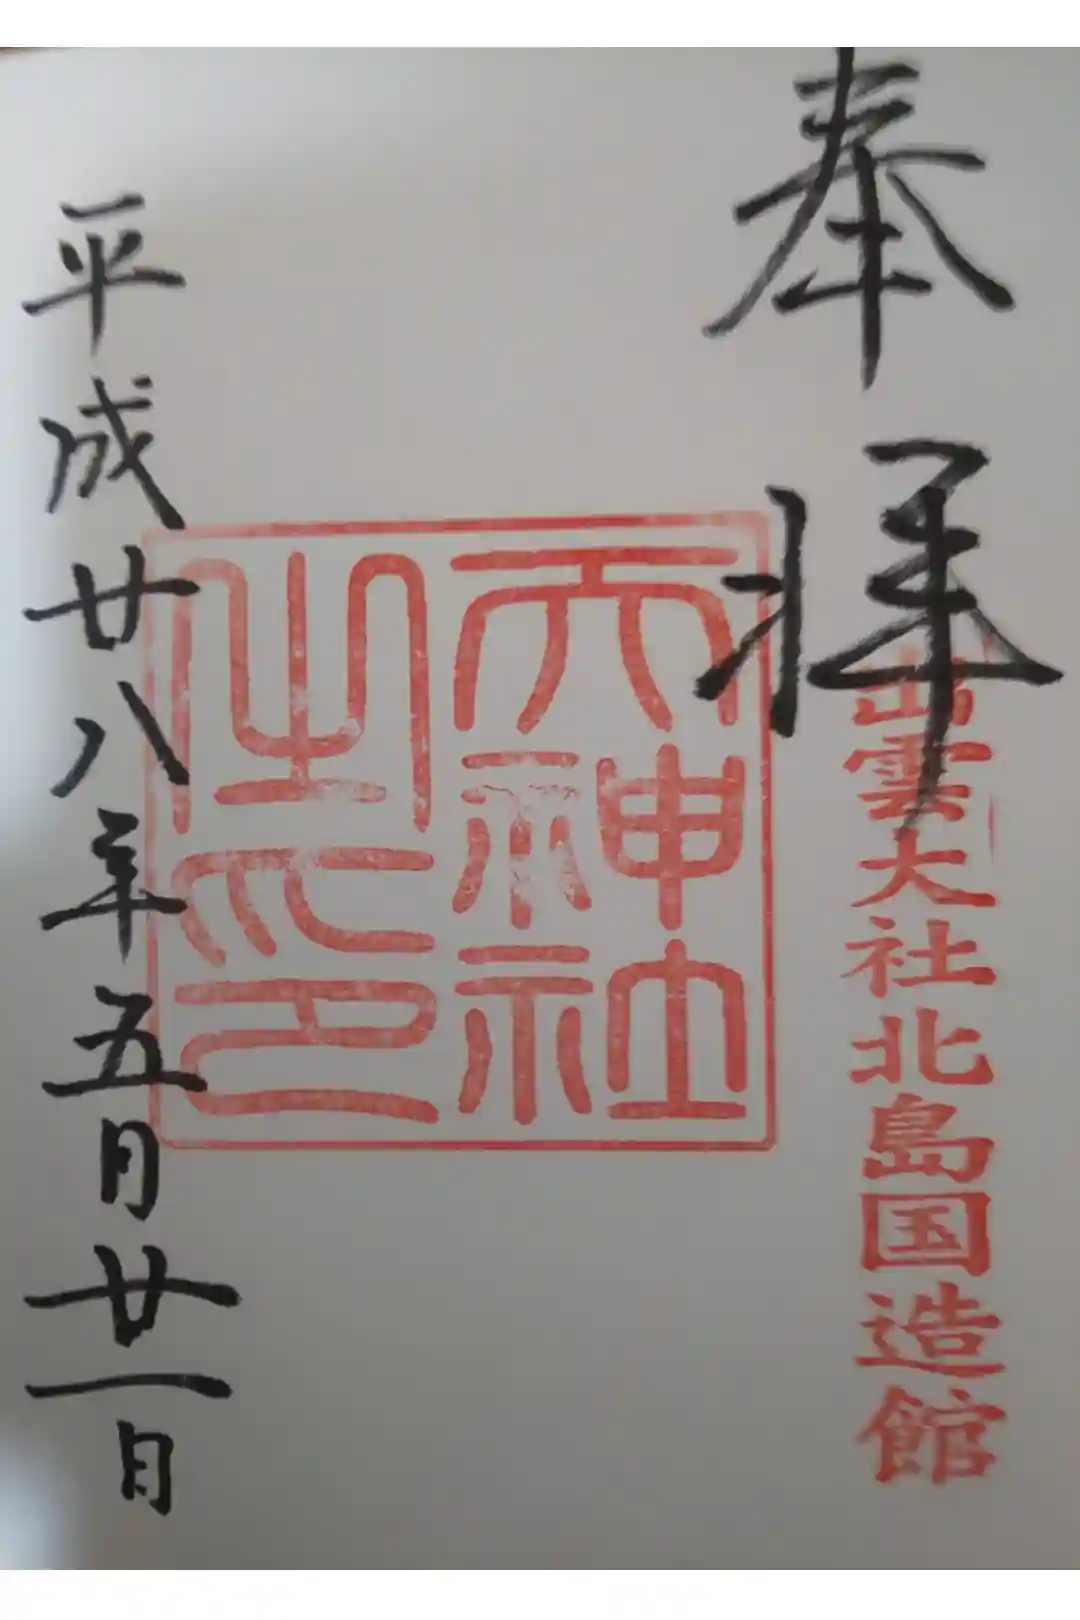 奉拝
出雲大社北島国造館
天神社
之印
平成廿八年五月廿一日